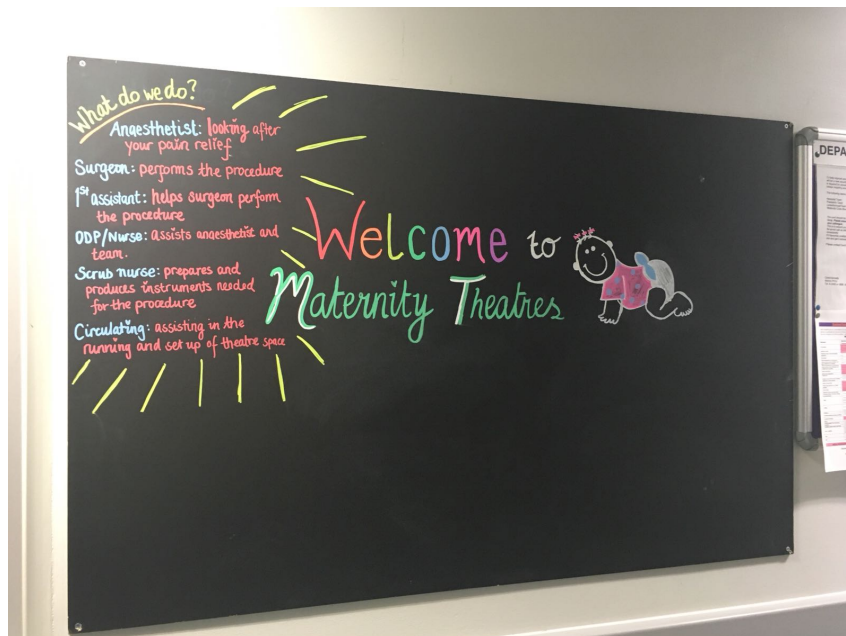 What do we do?
Anaesthetist: looking after
your pain relief.
Surgeon: performs the procedure
1st assistant: helps surgeon perform
the procedure
ODP/Nurse: assists anaesthetist and
team.
Scrub nurse: prepares and
produces instruments needed
for the procedure
Circulating: assisting in the
running and set up of theatre space
Welcome to
Maternity Theatres
DEPA